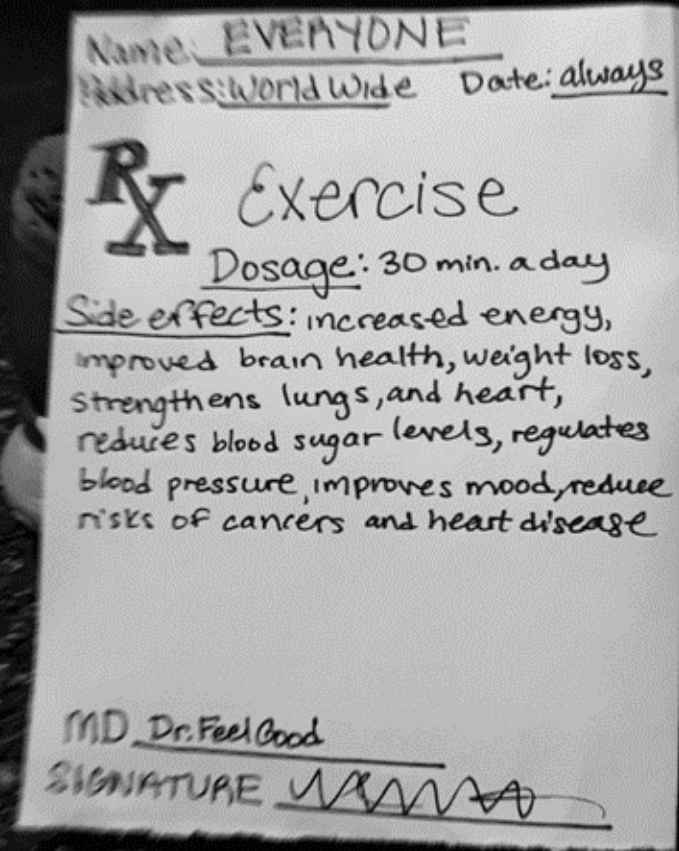 Name: EVERYONE
Address: World Wide Date: always
Rx Exercise
Dosage: 30 min. a day
Side effects: increased energy,
improved brain health, weight loss,
strengthens lungs, and heart,
reduces blood sugar levels, regulates
blood pressure, improves mood, reduce
risks of cancers and heart disease
MD Dr. Feel Good
SIGNATURE